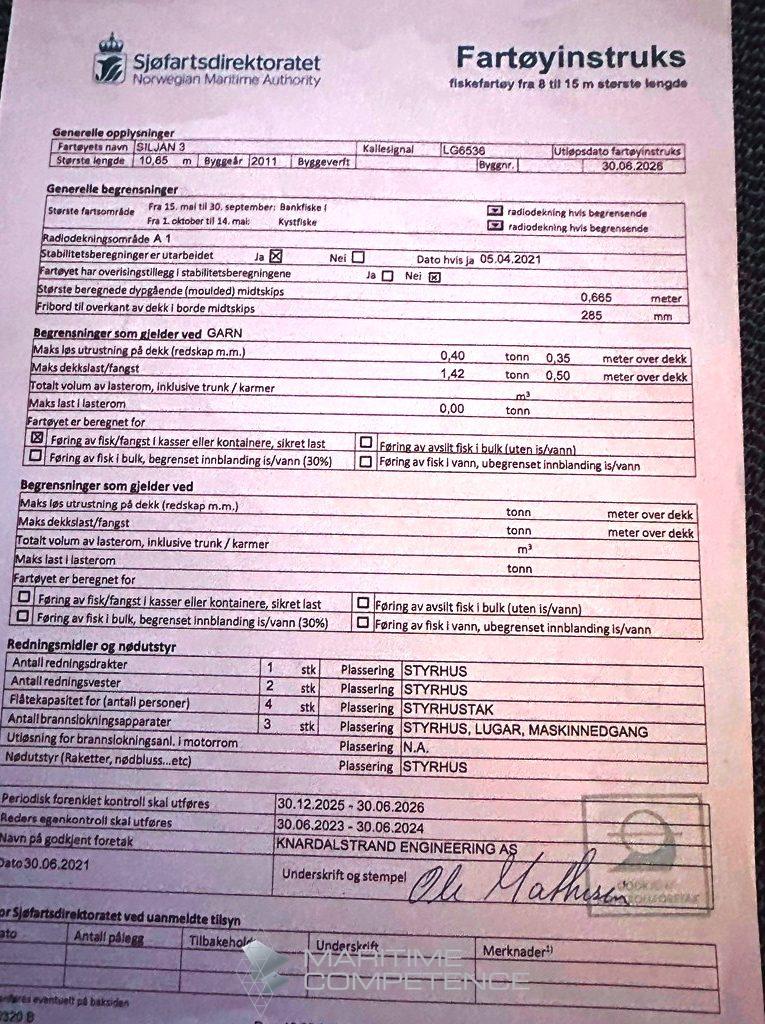 Sjøfartsdirektoratet
Norwegian Maritime Authority
Fartøyinstruks
fiskefartøy fra 8 til 15 m største lengde
Generelle opplysninger
Fartøyets navn SILJAN 3 Kallesignal LG6536 Utløpsdato fartøyinstruks
Største lengde 10,65 m Byggeår 2011 Byggeverft Byggnr. 30.06.2026
Generelle begrensninger
Største fartsområde Fra 15. mai til 30. september: Bankfiske I radiodekning hvis begrensende
Fra 1. oktober til 14. mai: Kystfiske radiodekning hvis begrensende
Radiodekningsområde A 1
Stabilitetsberegninger er utarbeidet Ja ☒ Nei ☐ Dato hvis ja 05.04.2021
Fartøyet har overisingstillegg i stabilitetsberegningene Ja ☐ Nei ☒
Største beregnede dypgående (moulded) midtskips 0,665 meter
Fribord til overkant av dekk i borde midtskips 285 mm
Begrensninger som gjelder ved GARN
Maks løs utrustning på dekk (redskap m.m.) 0,40 tonn 0,35 meter over dekk
Maks dekkslast/fangst 1,42 tonn 0,50 meter over dekk
Totalt volum av lasterom, inklusive trunk / karmer m³
Maks last i lasterom 0,00 tonn
Fartøyet er beregnet for
☒ Føring av fisk/fangst i kasser eller kontainere, sikret last ☐ Føring av avsilt fisk i bulk (uten is/vann)
☐ Føring av fisk i bulk, begrenset innblanding is/vann (30%) ☐ Føring av fisk i vann, ubegrenset innblanding is/vann
Begrensninger som gjelder ved
Maks løs utrustning på dekk (redskap m.m.) tonn meter over dekk
Maks dekkslast/fangst tonn meter over dekk
Totalt volum av lasterom, inklusive trunk / karmer m³
Maks last i lasterom tonn
Fartøyet er beregnet for
☐ Føring av fisk/fangst i kasser eller kontainere, sikret last ☐ Føring av avsilt fisk i bulk (uten is/vann)
☐ Føring av fisk i bulk, begrenset innblanding is/vann (30%) ☐ Føring av fisk i vann, ubegrenset innblanding is/vann
Redningsmidler og nødutstyr
Antall redningsdrakter 1 stk Plassering STYRHUS
Antall redningsvester 2 stk Plassering STYRHUS
Flåtekapasitet for (antall personer) 4 stk Plassering STYRHUSTAK
Antall brannslokningsapparater 3 stk Plassering STYRHUS, LUGAR, MASKINNEDGANG
Utløsning for brannslokningsanl. i motorrom Plassering N.A.
Nødutstyr (Raketter, nødbluss...etc) Plassering STYRHUS
Periodisk forenklet kontroll skal utføres 30.12.2025 - 30.06.2026
Reders egenkontroll skal utføres 30.06.2023 - 30.06.2024
Navn på godkjent foretak KNARDALSTRAND ENGINEERING AS
Dato 30.06.2021 Underskrift og stempel Ole Mathisen
or Sjøfartsdirektoratet ved uanmeldte tilsyn
ato Antall pålegg Tilbakehold Underskrift Merknader¹⁾
MARITIME
COMPETENCE
eventuelt på baksiden
320 B